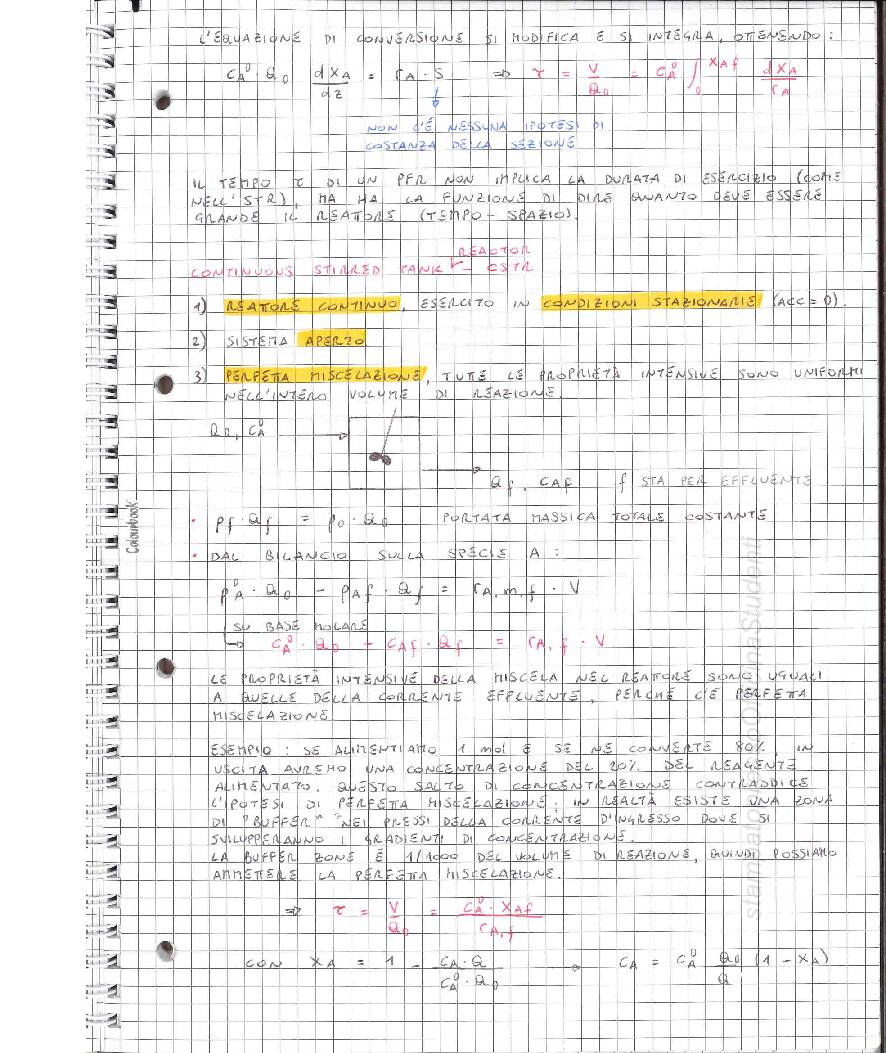 L'EQUAZIONE DI CONVERSIONE SI MODIFICA E SI INTEGRA, OTTENENDO:
C_A^0 · Q_0 dX_A/dz = r_A · S ⇒ τ = V/Q_0 = C_A^0 ∫_0^{X_Af} dX_A/r_A
NON C'È NESSUNA IPOTESI DI
COSTANZA DELLA SEZIONE
IL TEMPO τ DI UN PFR NON IMPLICA LA DURATA DI ESERCIZIO (COME
NELL'STR), MA HA LA FUNZIONE DI DIRE QUANTO DEVE ESSERE
GRANDE IL REATTORE (TEMPO-SPAZIO).
REACTOR
CONTINUOUS STIRRED TANK - CSTR
1) REATTORE CONTINUO, ESERCITO IN CONDIZIONI STAZIONARIE (ACC = 0).
2) SISTEMA APERTO
3) PERFETTA MISCELAZIONE, TUTTE LE PROPRIETÀ INTENSIVE SONO UNIFORMI
NELL'INTERO VOLUME DI REAZIONE.
Q_0, C_A^0
Q_f, C_Af f STA PER EFFLUENTE
• ρ_f · Q_f = ρ_0 · Q_0 PORTATA MASSICA TOTALE COSTANTE
• DAL BILANCIO SULLA SPECIE A:
ρ_A^0 · Q_0 - ρ_Af · Q_f = r_A,m,f · V
SU BASE MOLARE
→ C_A^0 · Q_0 - C_Af · Q_f = r_A,f · V
LE PROPRIETÀ INTENSIVE DELLA MISCELA NEL REATTORE SONO UGUALI
A QUELLE DELLA CORRENTE EFFLUENTE, PERCHÉ C'È PERFETTA
MISCELAZIONE
ESEMPIO: SE ALIMENTIAMO 1 mol E SE NE CONVERTE 80%, IN
USCITA AVREMO UNA CONCENTRAZIONE DEL 20% DEL REAGENTE
ALIMENTATO. QUESTO SALTO DI CONCENTRAZIONE CONTRADDICE
L'IPOTESI DI PERFETTA MISCELAZIONE; IN REALTÀ ESISTE UNA ZONA
DI "BUFFER" NEI PRESSI DELLA CORRENTE D'INGRESSO DOVE SI
SVILUPPERANNO I GRADIENTI DI CONCENTRAZIONE.
LA BUFFER ZONE È 1/1000 DEL VOLUME DI REAZIONE, QUINDI POSSIAMO
AMMETTERE LA PERFETTA MISCELAZIONE.
⇒ τ = V/Q_0 = C_A^0 · X_Af / r_A,f
CON X_A = 1 - C_A · Q / C_A^0 · Q_0 → C_A = C_A^0 Q_0/Q (1 - X_A)
Colourbook